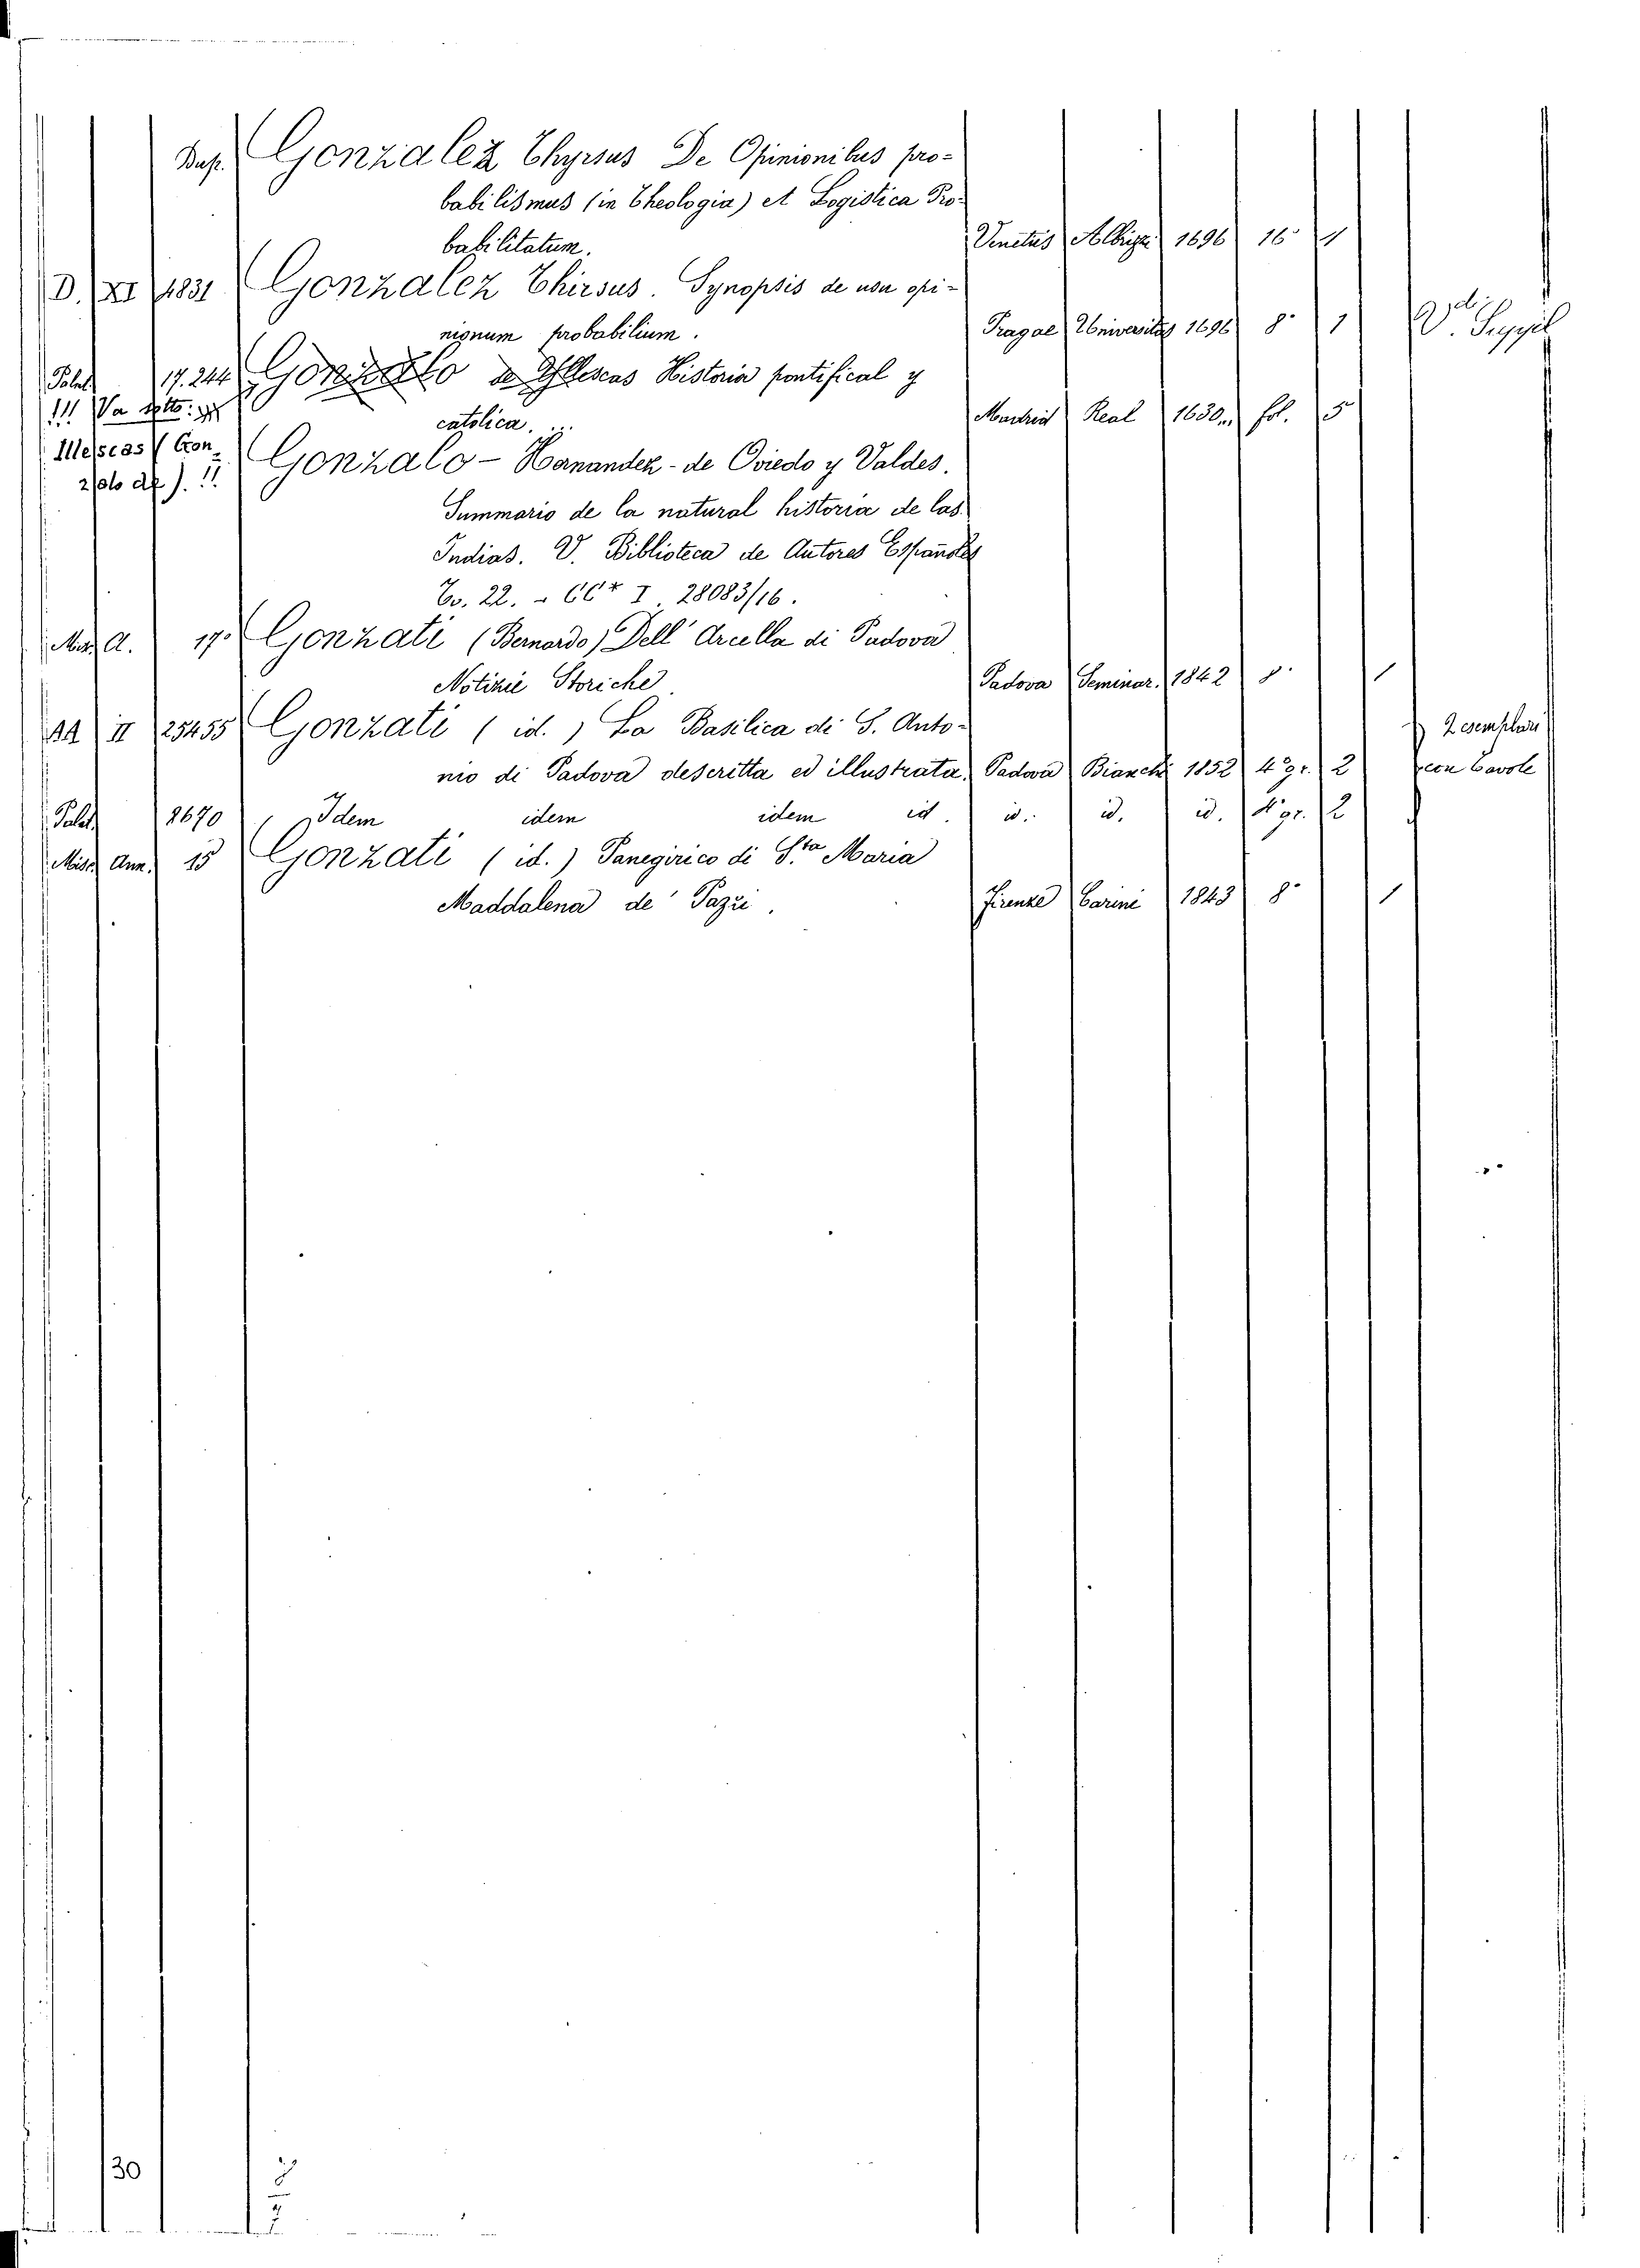 Dup. Gonzalez Thyrsus De Opinionibus pro-
babilismus (in Theologia) et Logistica Pro-
babilitatum. Venetus Albrizzi 1696 16° 1
D. XI 4831 Gonzalez Thirsus. Synopsis de non opi-
nionum probabilium. Pragae Universitas 1696 8° 1
Palat. 17.244 Gonzalo de Yllescas Historia pontifical y
!!! Va sotto:
catolica. Madrid Real 1630 fol. 5
Illescas (Gon-
zalo de). !! Gonzalo - Hernandez - de Oviedo y Valdes.
Summario de la natural historia de las
Indias. V. Biblioteca de Autores Españoles
To. 22. - CC* I. 28083/16.
Misc. A. 17. Gonzati (Bernardo) Dell' Arcella di Padova
Notizie Storiche Padova Seminar. 1842 8° 1
AA II 25455 Gonzati (id.) La Basilica di S. Anto- 2 esemplari
nio di Padova descritta ed illustrata. Padova Bianchi 1852 4° gr. 2 con tavole
Palat. 8670 Idem idem idem id. id. id. id. 4° gr. 2
Misc. Ann. 15 Gonzati (id.) Panegirico di S.ta Maria
Maddalena de' Pazzi. Firenze Carini 1843 8° 1
30